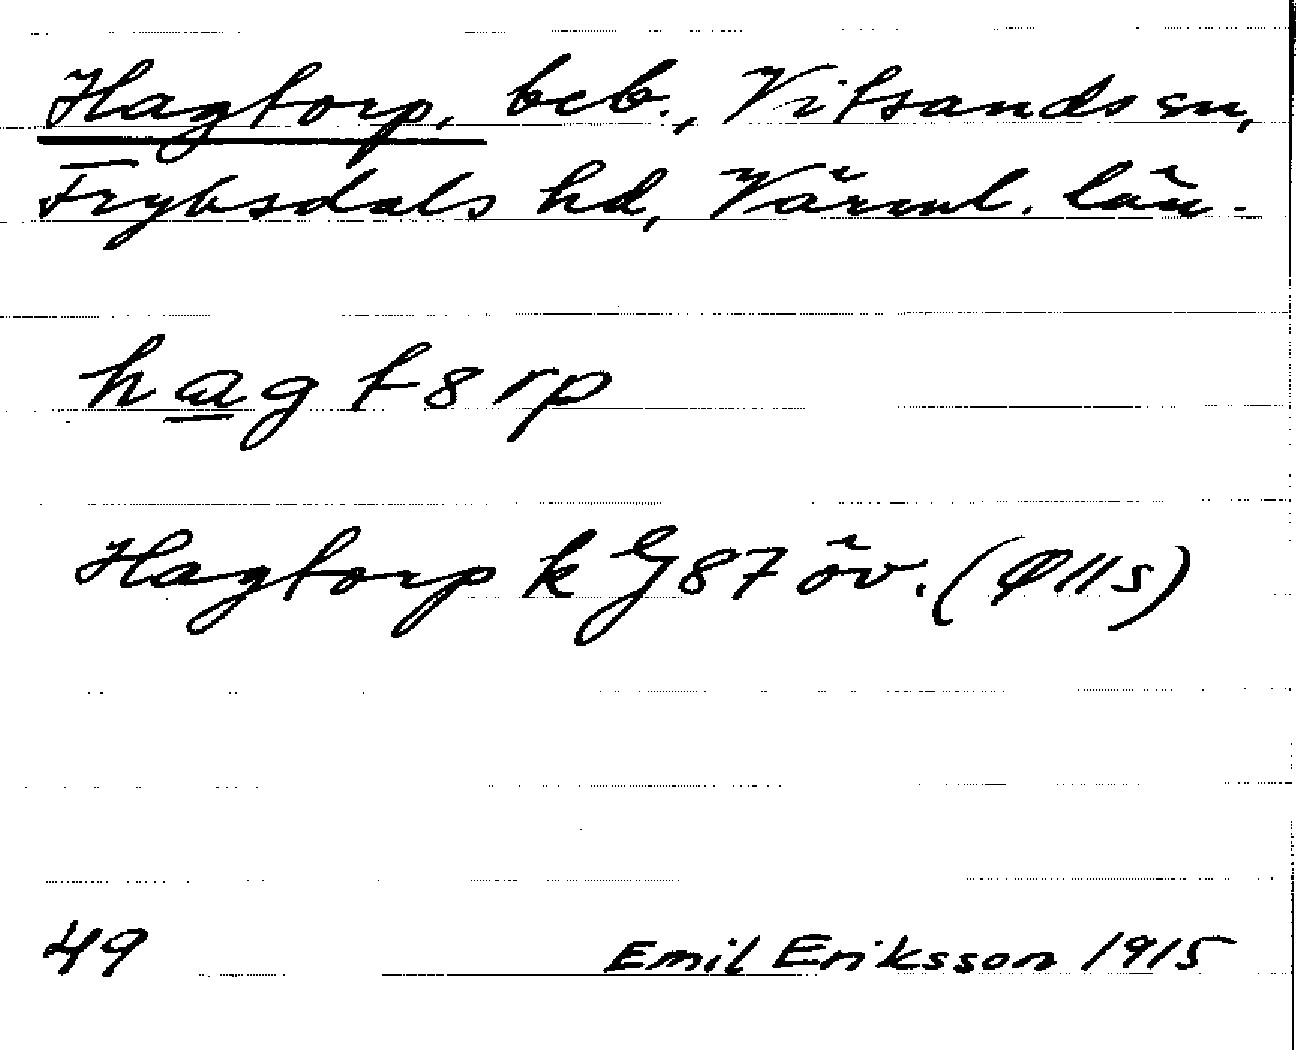 Hagtorp, beb., Vitsands sn,
Fryksdals hd, Värml. län.
hagt8rp
Hagtorp k G87 öv. (Ø11s)
49 Emil Eriksson 1915